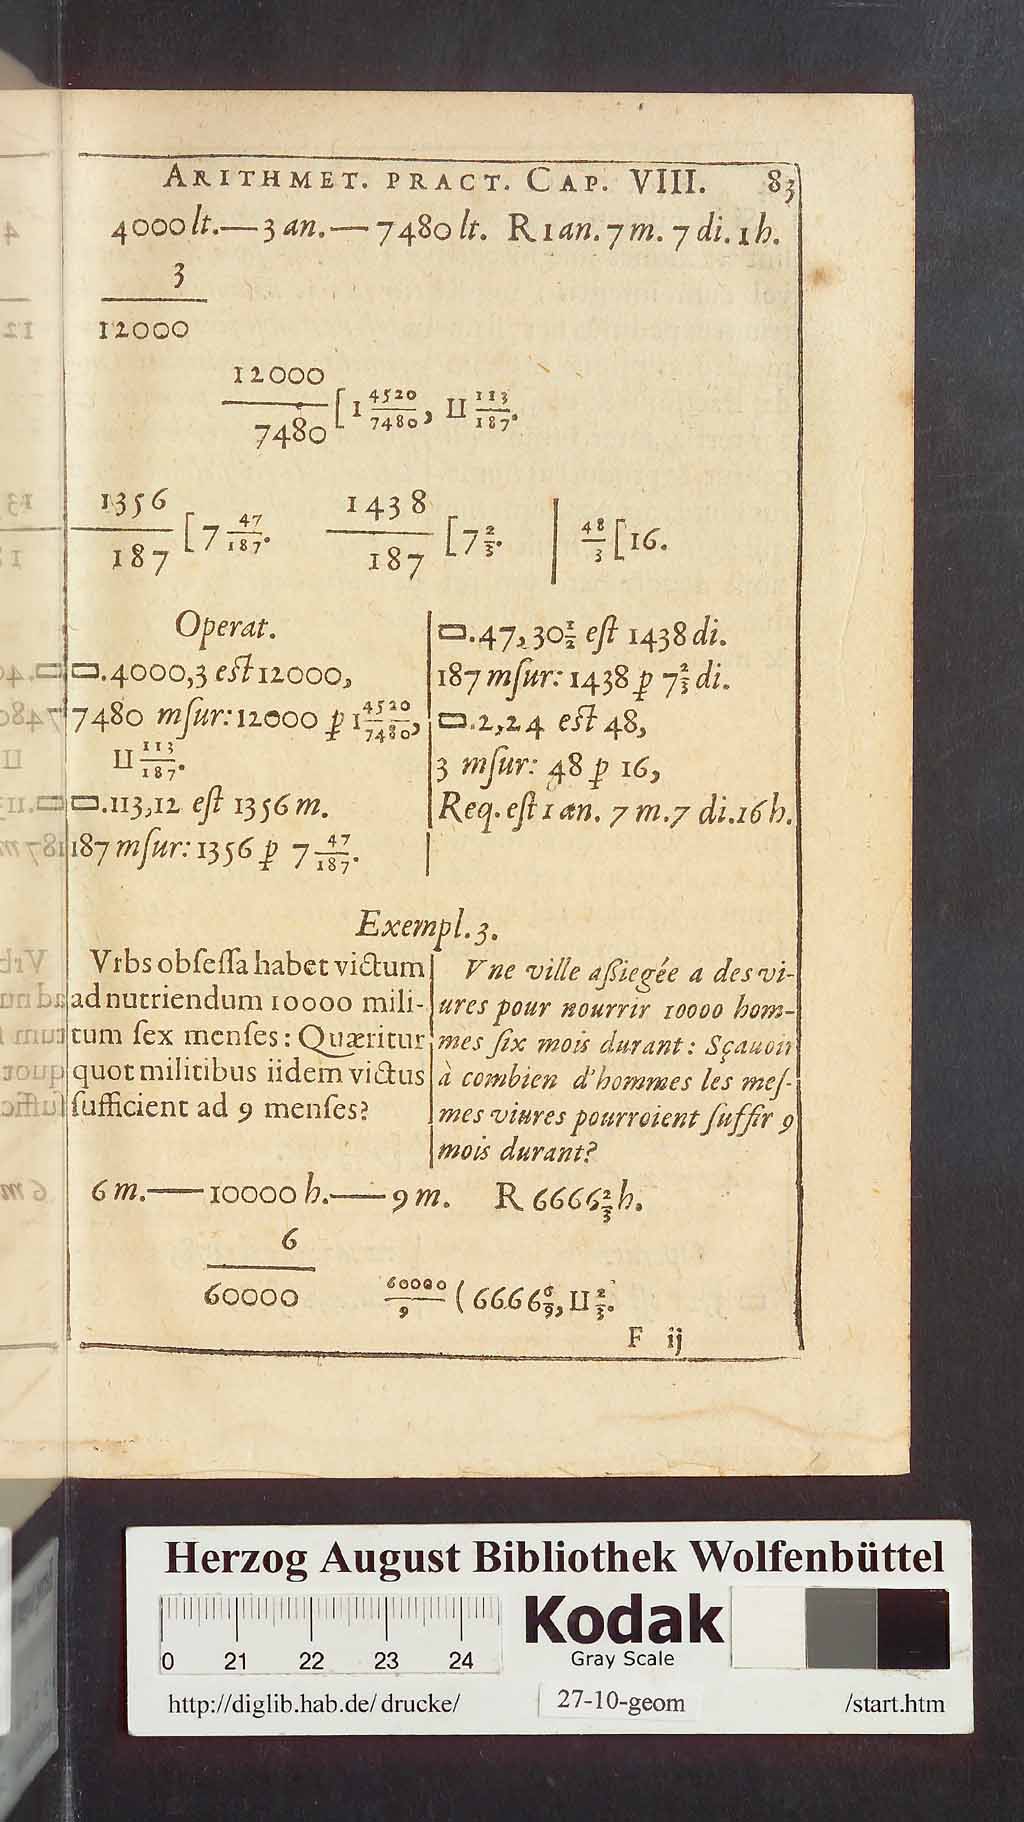 ARITHMET. PRACT. CAP. VIII. 83
4000 lt.— 3 an.— 7480 lt. R 1 an. 7 m. 7 di. 1 h.
3
12000
12000
7480 [1 4520/7480, II 113/187.
1356
187 [7 47/187.
1438
187 [7 2/3.
48/3 [16.
Operat.
▭.4000,3 est 12000,
7480 mſur: 12000 ꝑ 1 4520/7480,
II 113/187.
▭.113,12 eſt 1356 m.
187 mſur: 1356 ꝑ 7 47/187.
▭.47,30½ eſt 1438 di.
187 mſur: 1438 ꝑ 7⅔ di.
▭.2,24 est 48,
3 mſur: 48 ꝑ 16,
Req. eſt 1 an. 7 m. 7 di. 16 h.
Exempl. 3.
Vrbs obſeſſa habet victum
ad nutriendum 10000 mili-
tum ſex menſes: Quæritur
quot militibus iidem victus
ſufficient ad 9 menſes?
Vne ville aſſiegée a des vi-
ures pour nourrir 10000 hom-
mes ſix mois durant: Sçauoir
à combien d'hommes les meſ-
mes viures pourroient ſuffir 9
mois durant?
6 m.— 10000 h.— 9 m. R 6666⅔ h.
6
60000
60000/9 (6666 6/9, II ⅔.
F ij
Herzog August Bibliothek Wolfenbüttel
0 21 22 23 24
Kodak
Gray Scale
http://diglib.hab.de/ drucke/ 27-10-geom /start.htm